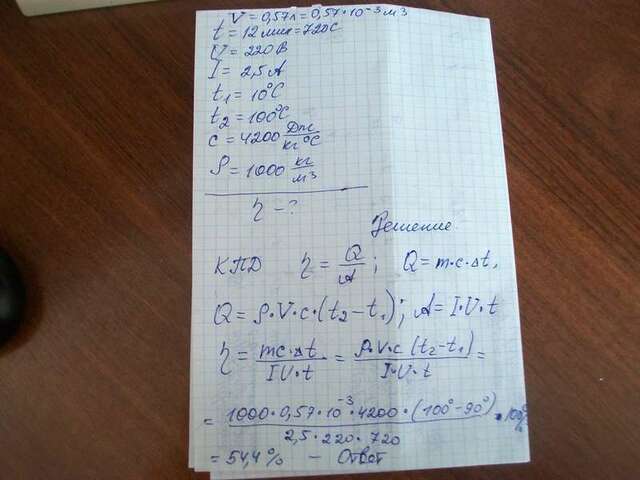 V = 0,57л = 0,57·10⁻³ м³
t = 12 мин = 720 С
U = 220 В
I = 2,5 А
t₁ = 10°C
t₂ = 100°C
c = 4200 Дж/кг°C
ρ = 1000 кг/м³
η - ?
Решение.
КПД η = Q/A ; Q = m·c·Δt,
Q = ρ·V·c·(t₂ - t₁) ; A = I·U·t
η = mc·Δt/IU·t = ρ·V·c(t₂ - t₁)/I·U·t =
= 1000·0,57·10⁻³·4200·(100° - 90°)/2,5·220·720 · 100%
= 54,4% — Ответ